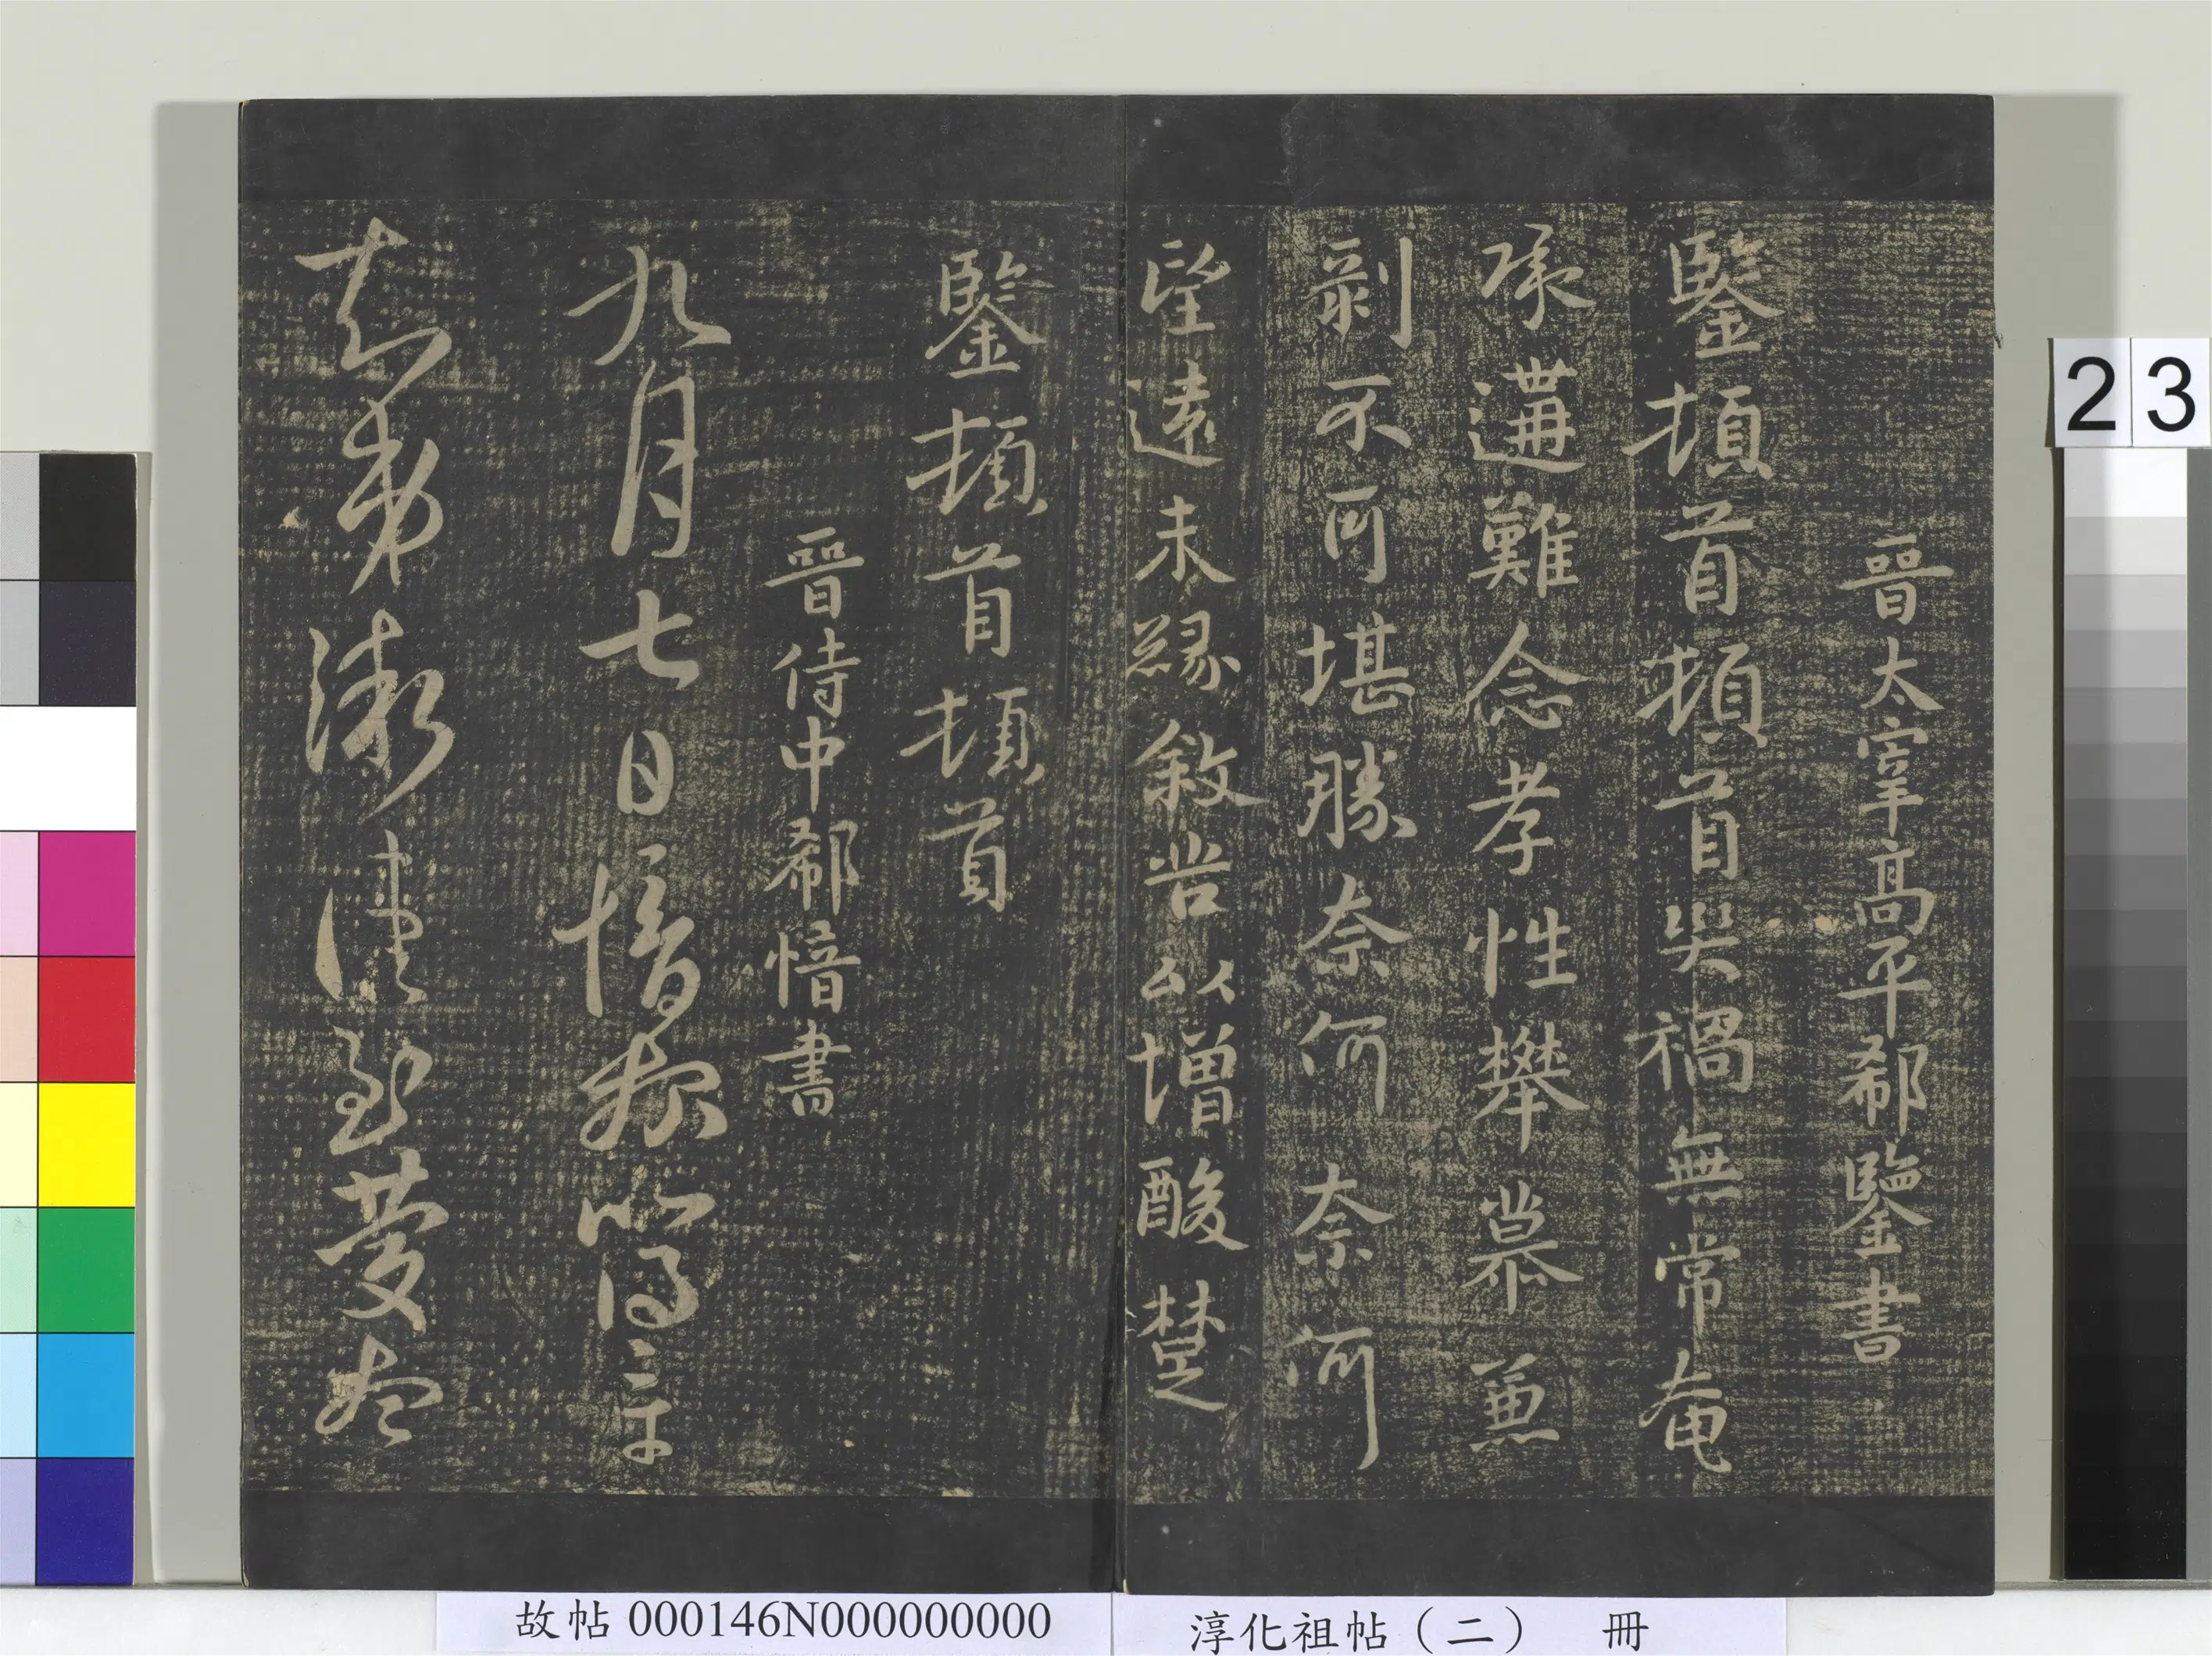 晉太宰高平郗鑒書
鑒頓首頓首災禍無常奄
承遘難念孝性攀慕兼
剝不可堪勝奈何奈何
望遠未緣敘苦以增酸楚
鑒頓首頓首
晉侍中郗愔書
九月七日愔報比得章
知弟漸佳至慶想
23
故帖 000146N000000000
淳化祖帖（二） 冊